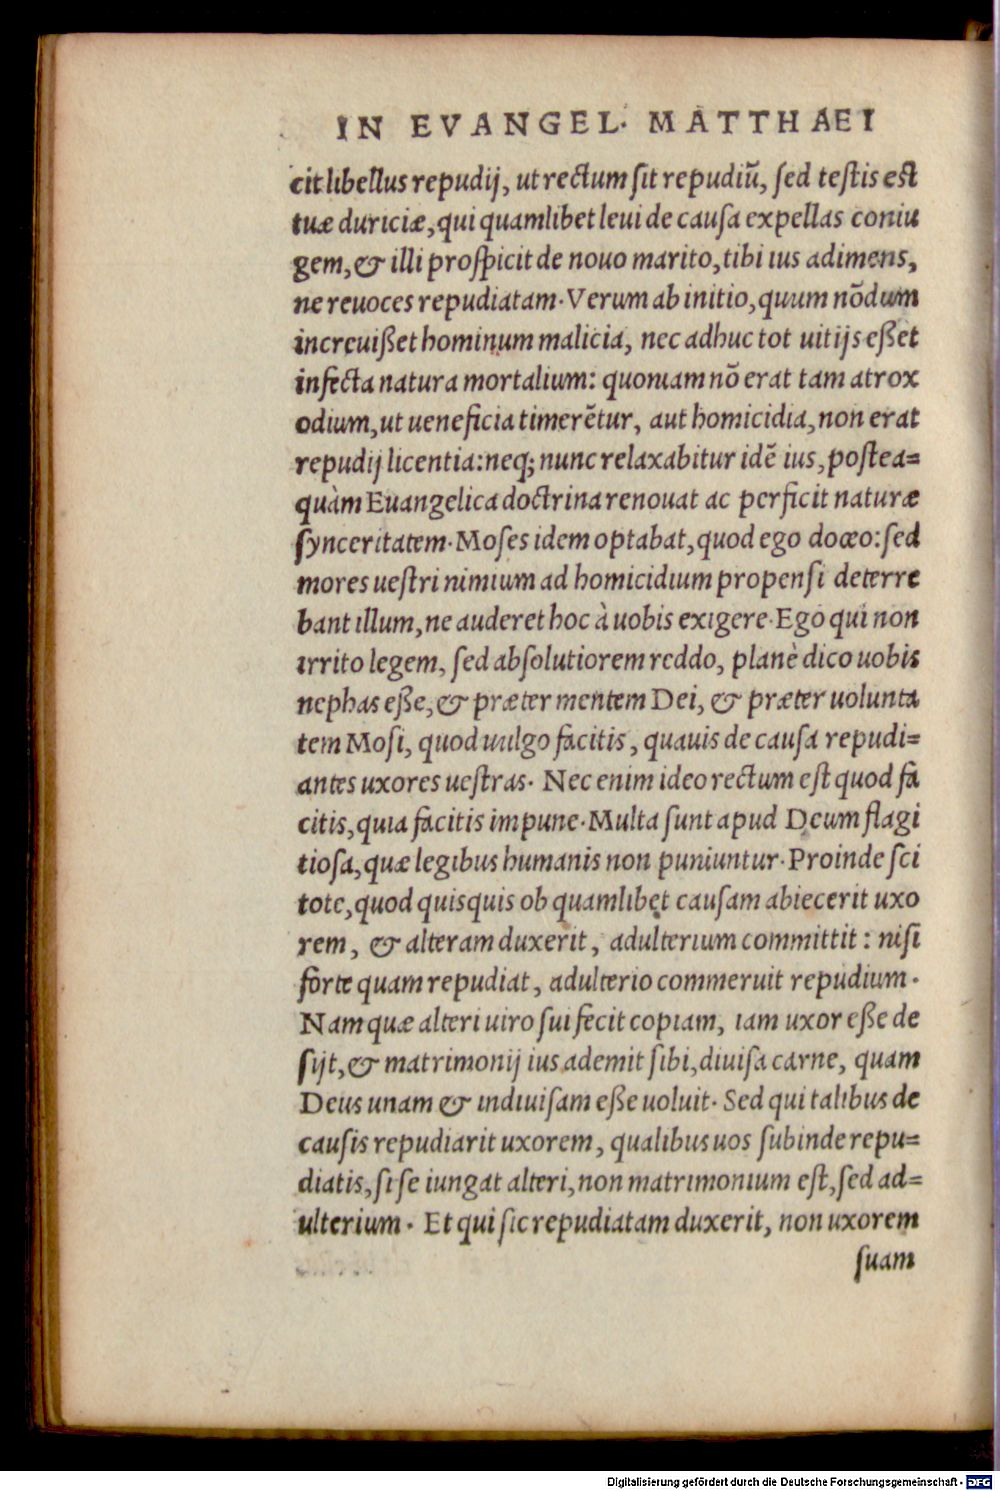 IN EVANGEL. MATTHAEI
cit libellus repudij, ut rectum sit repudiũ, sed testis est
tuæ duriciæ, qui quamlibet leui de causa expellas coniu
gem, & illi prospicit de nouo marito, tibi ius adimens,
ne reuoces repudiatam. Verum ab initio, quum nõdum
increuißet hominum malicia, nec adhuc tot uitijs eßet
infecta natura mortalium: quoniam nõ erat tam atrox
odium, ut ueneficia timerẽtur, aut homicidia, non erat
repudij licentia: neq; nunc relaxabitur idẽ ius, postea=
quàm Euangelica doctrina renouat ac perficit naturæ
synceritatem. Moses idem optabat, quod ego doceo: sed
mores uestri nimium ad homicidium propensi deterre
bant illum, ne auderet hoc à uobis exigere. Ego qui non
irrito legem, sed absolutiorem reddo, planè dico uobis
nephas eße, & præter mentem Dei, & præter uolunta
tem Mosi, quod uulgo facitis, quauis de causa repudi=
antes uxores uestras. Nec enim ideo rectum est quod fa
citis, quia facitis impune. Multa sunt apud Deum flagi
tiosa, quæ legibus humanis non puniuntur. Proinde sci
tote, quod quisquis ob quamlibet causam abiecerit uxo
rem, & alteram duxerit, adulterium committit: nisi
forte quam repudiat, adulterio commeruit repudium.
Nam quæ alteri uiro sui fecit copiam, iam uxor eße de
sijt, & matrimonij ius ademit sibi, diuisa carne, quam
Deus unam & indiuisam eße uoluit. Sed qui talibus de
causis repudiarit uxorem, qualibus uos subinde repu=
diatis, si se iungat alteri, non matrimonium est, sed ad=
ulterium. Et qui sic repudiatam duxerit, non uxorem
suam
Digitalisierung gefördert durch die Deutsche Forschungsgemeinschaft - DFG